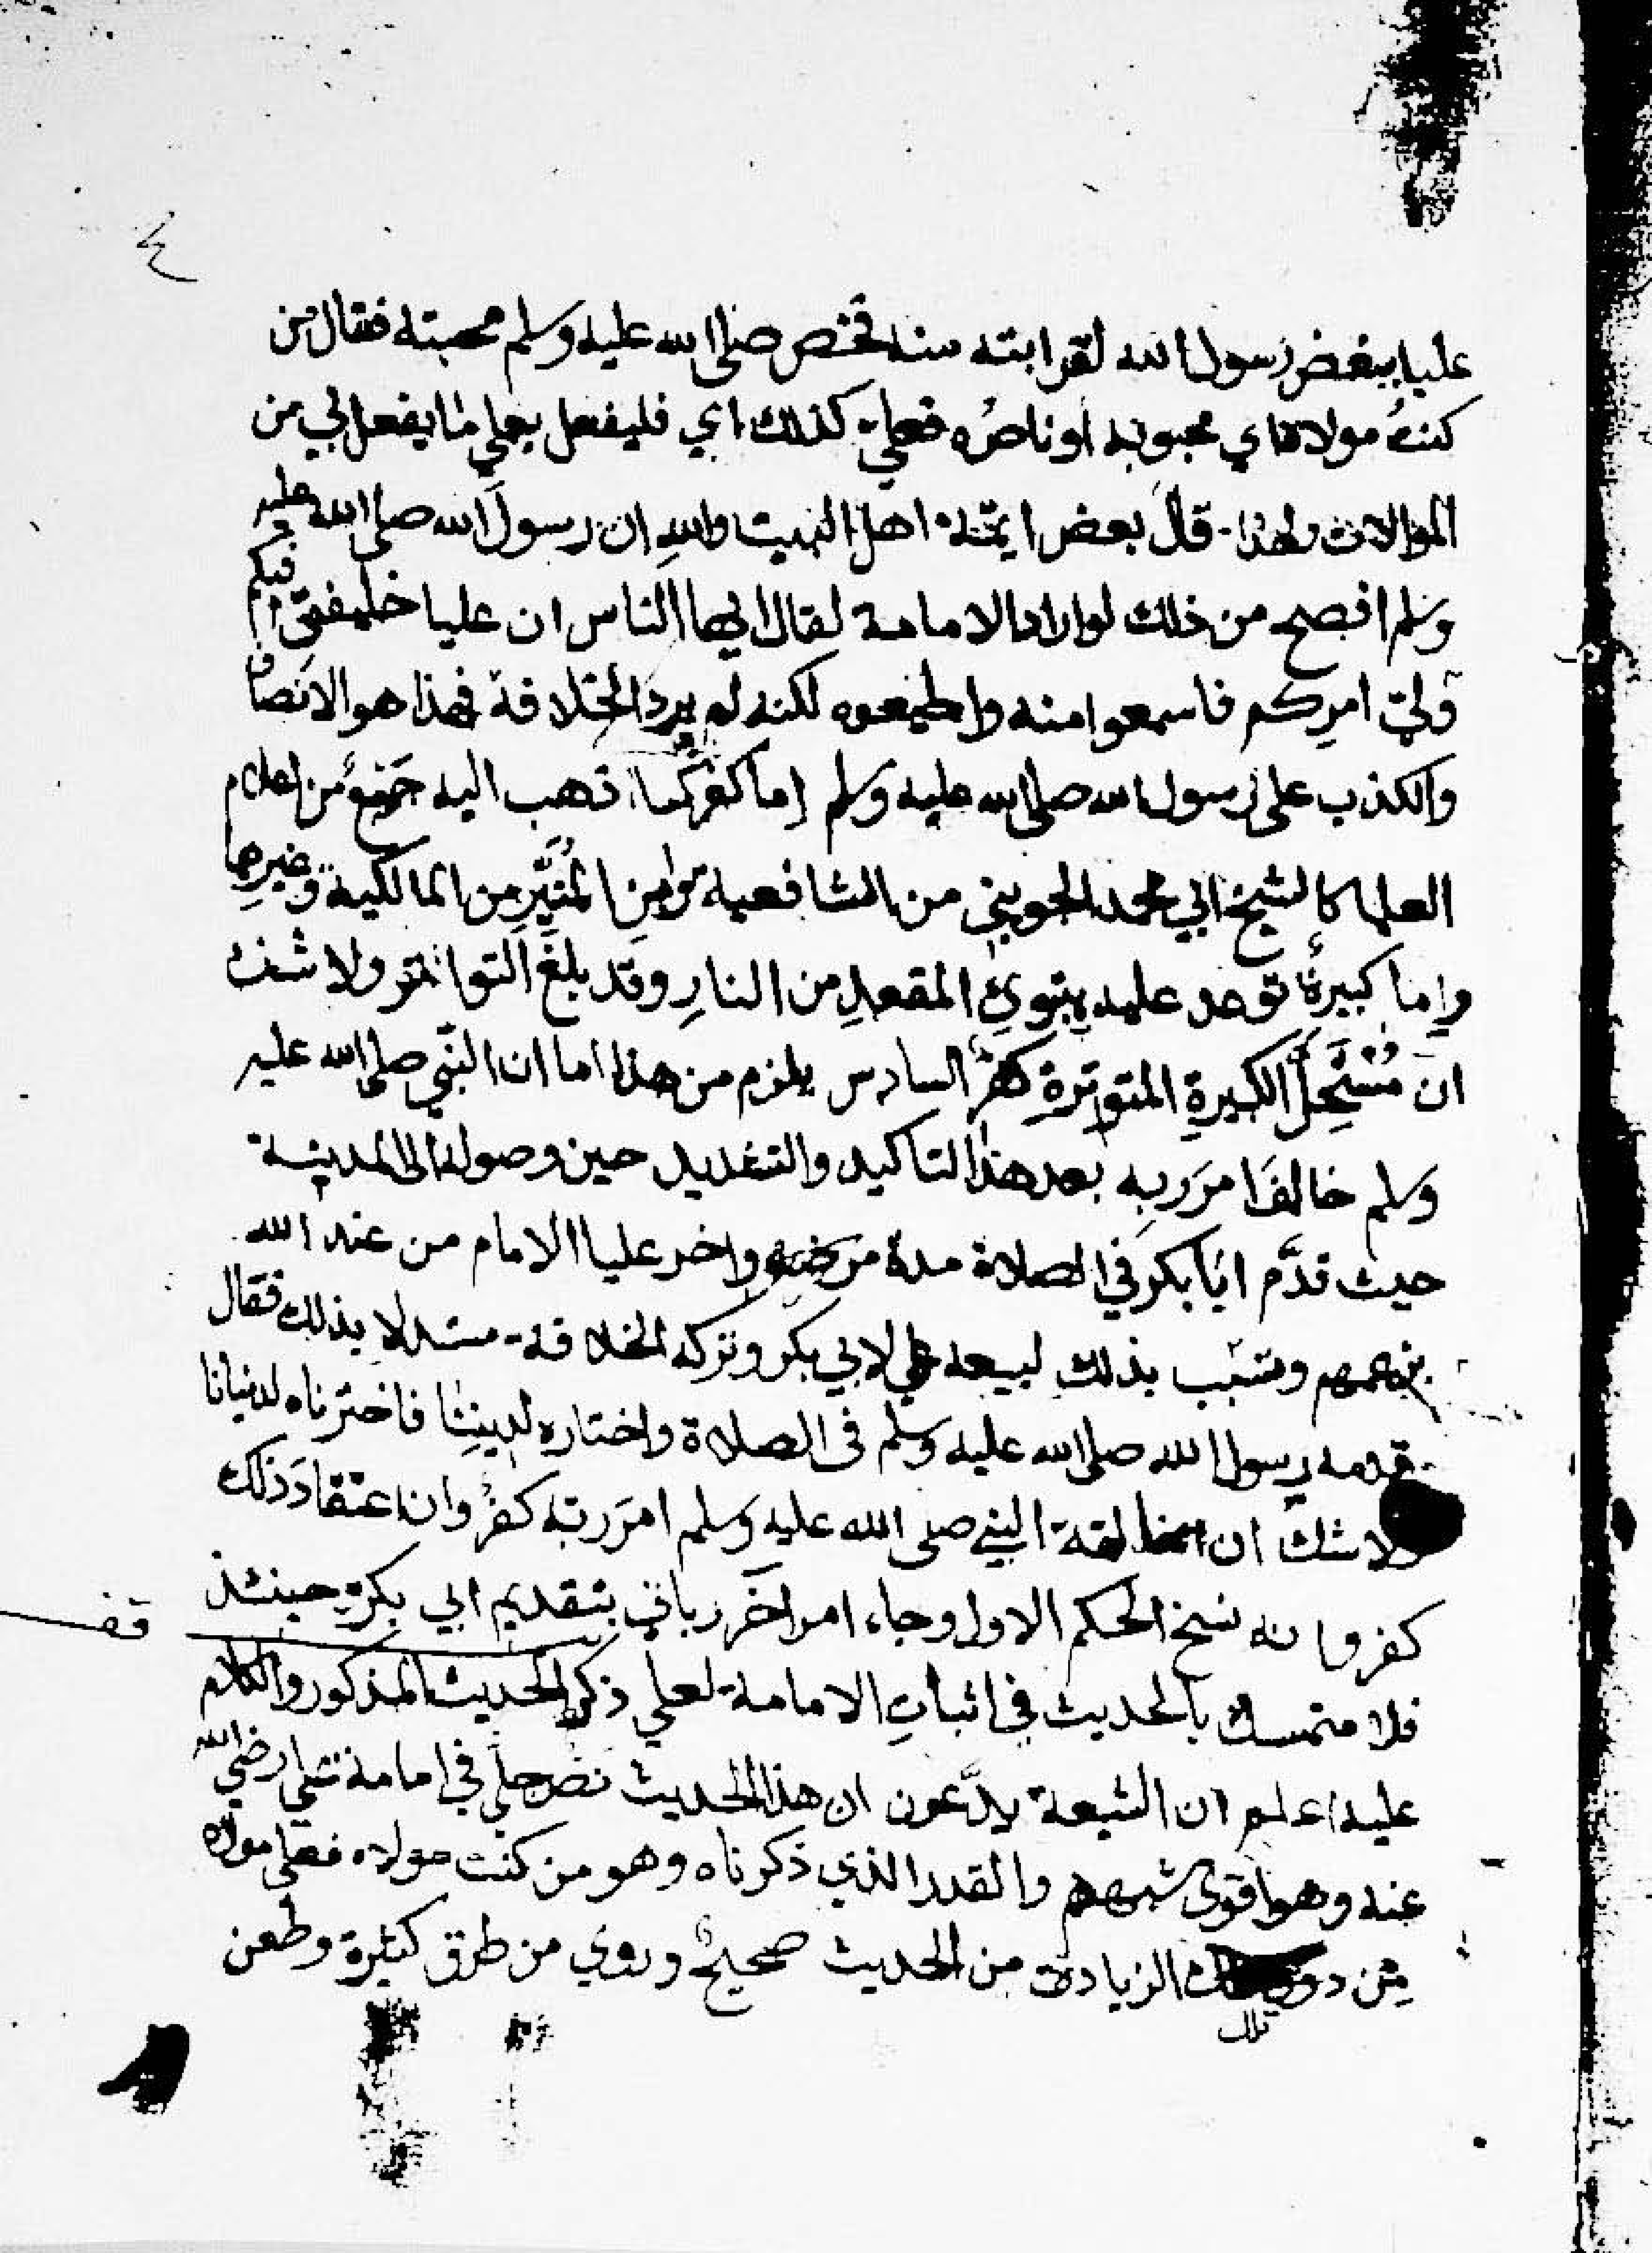 ٤
عليا ببغض رسول الله لقرابته منه فخص صلى الله عليه وسلم محبته فقال من
كنتُ مولاه اي محبوبه او ناصرُه فعليّ كذلك اي فليفعل بعلي ما يفعل بي من
الموالات ولهذا قال بعض ايمّة اهل البيت والله ان رسول الله صلى الله عليه
وسلم افصح من ذلك لو اراد الامامة لقال ايها الناس ان عليا خليفتي فيكم
وليّ امركم فاسمعوا منه واطيعوه لكنه لم يرد الخلافة فهذا هو الانصاف
والكذب على رسول الله صلى الله عليه وسلم إما كفر كما ذهب اليه جمعٌ من اعلام
العلما كالشيخ ابي محمد الجويني من الشافعية وابن المُنَيِّر من المالكية وغيرهما
وإما كبيرةٌ توعد عليه بتبوئ المقعد من النار وقد بلغ التواتر ولا شك
ان مُسْتَحِلَّ الكبيرة المتوترة كفرٌ السادس يلزم من هذا اما ان النبي صلى الله عليه
وسلم خالف امر ربه بعد هذا التاكيد والتشديد حين وصوله الى المدينة
حيث قدَّم ابا بكر في الصلاة مدة مرضه واخر عليا الامام من عند الله
بزعمهم وتسبّب بذلك لبيعة علي لابي بكر وتركه الخلافة مستدلا بذلك فقال
قدمه رسول الله صلى الله عليه وسلم في الصلاة واختاره لديننا فاخترناه لدنيانا
ولا شك ان مخالفة النبي صلى الله عليه وسلم امر ربه كفرٌ وان اعتقاد ذلك
كفر وانه نسخ الحكم الاول وجاء امر آخر رباني بتقديم ابي بكر وحينئذ
قف
فلا متمسك بالحديث في اثبات الامامة لعلي ذكر الحديث المذكور والكلام
عليه اعلم ان الشيعة يدّعون ان هذا الحديث نص جلي في امامة علي رضي الله
عنه وهو اقوى شبههم والقدر الذي ذكرناه وهو من كنت مولاه فعلي مولاه
مِن دون تلك الزيادة من الحديث صحيحٌ وروي من طرق كثيرة وطعن